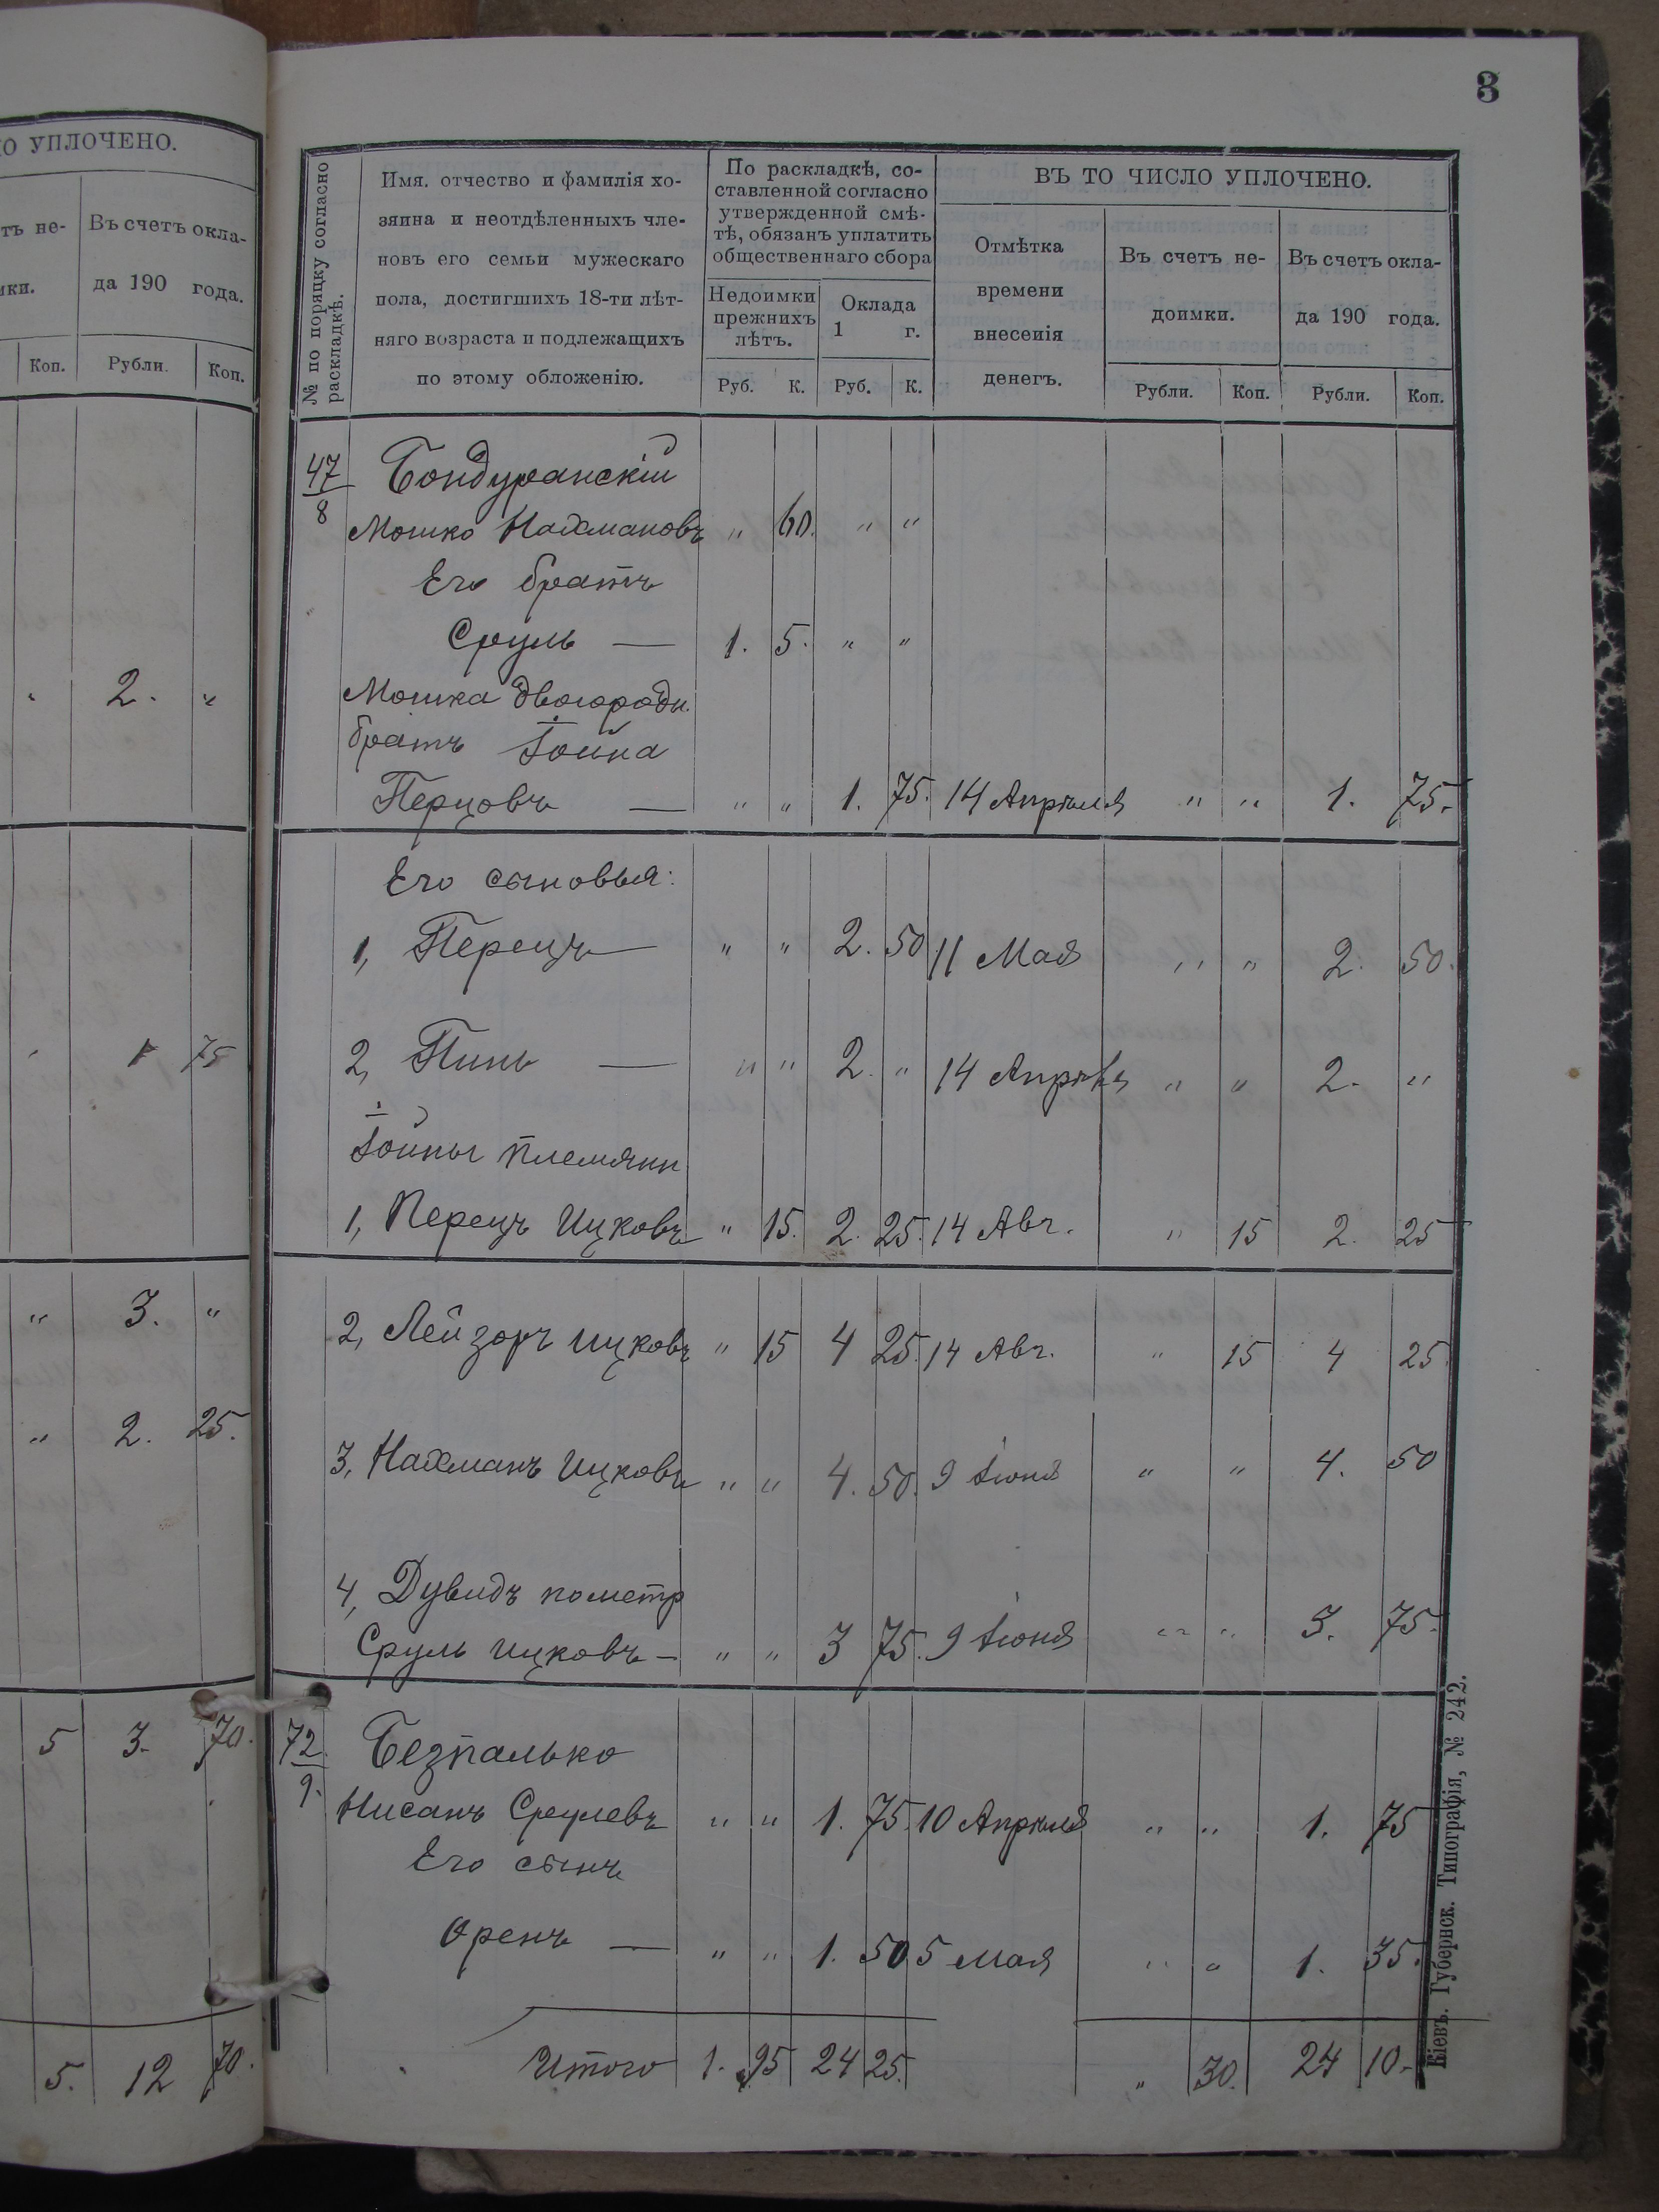 О УПЛОЧЕНО.
тъ не- Въ счетъ окла-
мки. да 190 года.
Коп. Рубли. Коп.
" 2. "
" 1 75
" 3. "
" 2. 25.
5 3. 70.
5. 12 70.
3
№ по поряцку согласно раскладкѣ.
Имя. отчество и фамилія хо-
зяина и неотдѣленныхъ чле-
новъ его семьи мужескаго
пола, достигшихъ 18-ти лѣт-
няго возраста и подлежащихъ
по этому обложенію.
По раскладкѣ, со-
ставленной согласно
утвержденной смѣ-
тѣ, обязанъ уплатить
общественнаго сбора
Недоимки
прежнихъ
лѣтъ.
Оклада
1 г.
Руб. К. Руб. К.
ВЪ ТО ЧИСЛО УПЛОЧЕНО.
Отмѣтка
времени
внесенія
денегъ.
Въ счетъ не-
доимки.
Въ счетъ окла-
да 190 года.
Рубли. Коп. Рубли. Коп.
47/8 Бондуранскій
Мошко Нахмановъ " 60. " "
Его братъ
Сруль — 1. 5. " "
Мошка двоюродн.
братъ Іойна
Перцовъ — " " 1. 75. 14 Апрѣля " " 1. 75.
Его сыновья:
1, Перецъ — " " 2. 50 11 Мая " " 2. 50.
2, Пинь — " " 2. " 14 Апрѣля " " 2. "
Іойны племянн
1, Перецъ Ицковъ " 15. 2. 25. 14 Авг. " 15 2. 25
2, Лейзоръ Ицковъ " 15 4 25. 14 Авг. " 15 4 25.
3, Нахманъ Ицковъ " " 4. 50. 9 Іюня " " 4. 50
4, Дувидъ пометр
Сруль Ицковъ — " " 3 75. 9 Іюня " " 3. 75.
72/9. Безпалько
Нисанъ Срулевъ " " 1. 75. 10 Апрѣля " " 1. 75
Его сынъ
Оренъ — " " 1. 50 5 Мая " " 1. 35.
Итого 1. 95 24 25. " 30. 24 10.
Кіевъ. Губернск. Типографія, № 242.